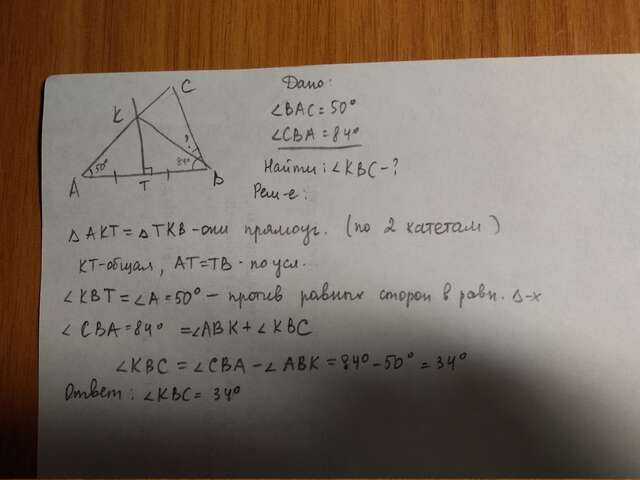 C
K
?
50°
84°
A
T
B
Дано:
∠BAC = 50°
∠CBA = 84°
Найти: ∠KBC - ?
Реш-е:
△AKT = △TKB - они прямоуг. (по 2 катетам)
KT - общая, AT = TB - по усл.
∠KBT = ∠A = 50° - против равных сторон в равн. △-х
∠CBA = 84° = ∠ABK + ∠KBC
∠KBC = ∠CBA - ∠ABK = 84° - 50° = 34°
Ответ: ∠KBC = 34°